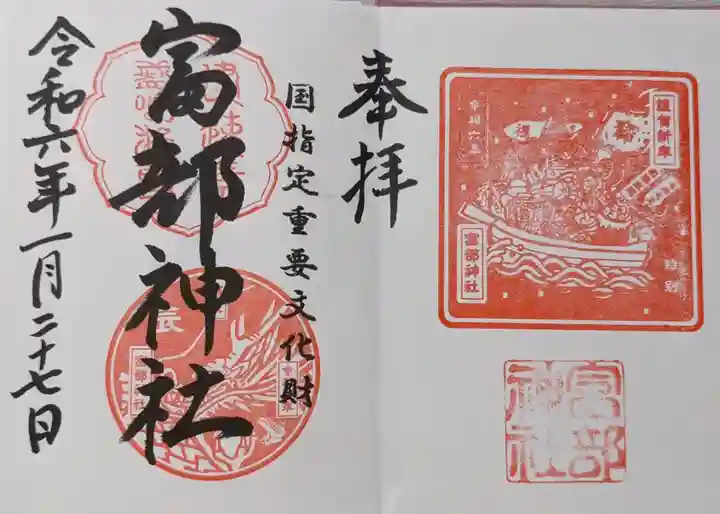 謹賀新年
令和六年
富部神社
特別
富部神社
奉拝
国指定重要文化財
富部神社
辰
令和六年一月二十七日